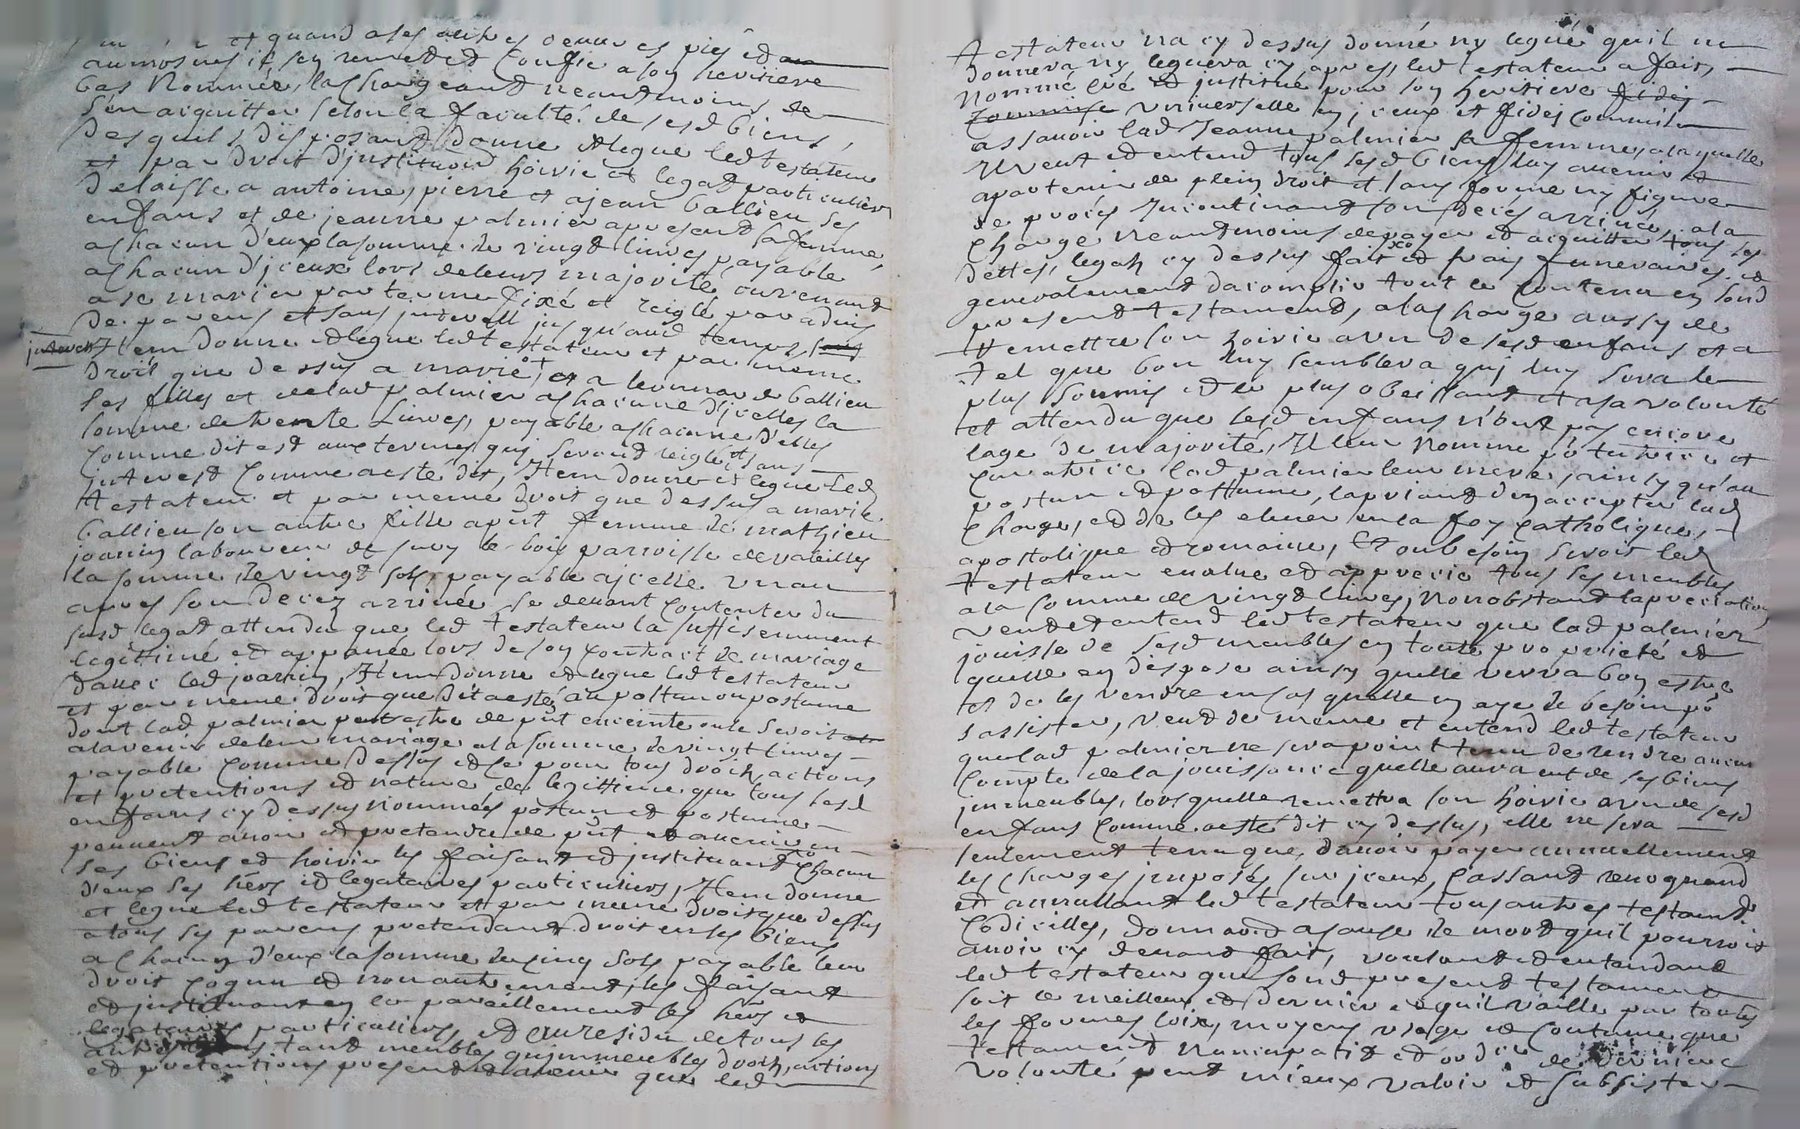 et quand a ses autres oeuvres pies et
aumosnes il sen remet et confie a son heritiere
bas nommée, la chargeant neantmoins de
s'en aiquitter selon la faculté de sesd biens,
Desquels disposant donne et legue led testateur
et par droit d'jnstitution hoirie et legat particulier
delaisse a antoine, pierre et a jean Gallien ses
enfans et de jeanne palmier apresent sa femme,
a chacun d'eux la somme de vingt livres payable
a chacun d'jceux lors de leurs majorité ou venant
a se marier par terme fixé et reiglé par advis
de parens et sans jnterest jusqu'aud temps,
Jtem donne et legue led testateur et par meme
droit que dessus a marie et a leonnarde Gallien
ses filles et de lad palmier a chacune d'jcelles la
somme de trente Livres, payable a chacune d'elles
comme dit est aux termes qui seront reiglé et sans
jnterest comme a esté dit, Jtem donne et legue Led
testateur et par meme droit que dessus a marie
Gallien son autre fille aput femme de mathieu
joannin laboureur de sury le bois parroisse de valeilles
la somme de vingt sols payable a jcelle un an
apres son decez arrivée se devant contenter du
susd legat attendu que led testateur la suffisemment
legittimé et appanée lors de son contract de mariage
d'avec led joannin, Jtem donne et legue led testateur
et par meme droit que dit a esté au postun ou postume
dont lad palmier peut estre de put enceinte ou le seroit
a lavenir de leur mariage a la somme de vingt livres
payable comme dessus et ce pour tous droits actions
et pretentions et nature de legittime que tous lesd
enfans cy dessus nommées postun et postume
peuvent avoir et pretendre de put et avenir en
ses biens et hoirie les faisant et jnstituant chacun
d'eux ses hers et legataires particuliers, Jtem donne
et legue led testateur et par meme droit que dessus
a tous ses parens pretendant droit en ses biens
a chacun d'eux la somme de cinq sols payable leur
droit cognu et non autrement, les faisant
et jnstituant en ce pareillement ses hers et
legataires particuliers, et au residu de tous les
autres biens tant meubles qu'jmmeubles droits, actions
et pretentions present et avenir que led
testateur na cy dessus donné ny legué quil ne
donnera ny leguera cy apres, led testateur a fait,
nommé créé et jnstitué pour son heritiere
universelle en jceux et fidej commise
assavoir lad Jeanne palmier sa femme, a laquelle
veut et entend tous sesd biens luy avenir et
apartenir de plein droit et sans forme ny figure
de procés Jncontinant son decés arrivée, a la
charge neantmoins de payer et aiquitter tous ses
dettes, legats cy dessus fait et frais funeraires et
generalement dacomplir tout le contenu en sond
present testament, a la charge aussy de
remettre son hoirie a un de sesd enfans et a
tel que bon luy semblera qui luy sera le
plus soumis et le plus obeissant et sa volonté
et attendu que lesd enfans n'ont pas encore
lage de majorité, Jl leur nomme po tutrice et
curatrice lad palmier leur mere, ainsy qu'au
postun et postume, la priant d'en accepter lad
charge, et de les elever en la foy catholique,
apostolique et romaine, Et au besoin seroit led
testateur evalue et apprecie tous ses meubles
a la somme de vingt livres, nonobstant lapreciation
veut et entend led testateur que lad palmier
jouisse de sesd meubles en toute proprieté et
quelle en dispose ainsy quelle verra bon estre
et de les vendre en cas quelle en aye de besoin po
sassister, veut de meme et entend led testateur
que lad palmier ne sera point tenu de rendre aucun
compte de la jouissance quelle aura eut de ses biens
jmmeubles, lorsquelle remettra son hoirie a un de sesd
enfans comme a esté dit cy dessus, elle ne sera
seulement tenu que, d'avoir payer annuellement
les charges jmposés sur jceux, cassant revoquant
et annullant led testateur tous autres testamt
Codicilles, donnaon a cause de mort quil pourroit
avoir cy devant fait, voulant et entendant
led testateur que sond present testament
soit le meilleur et dernier et quil vaille par toutes
les formes loix, moyens usage et coutume que
testament nuncupatif et ordre de derniere
volonté peut mieux valoir et subsister